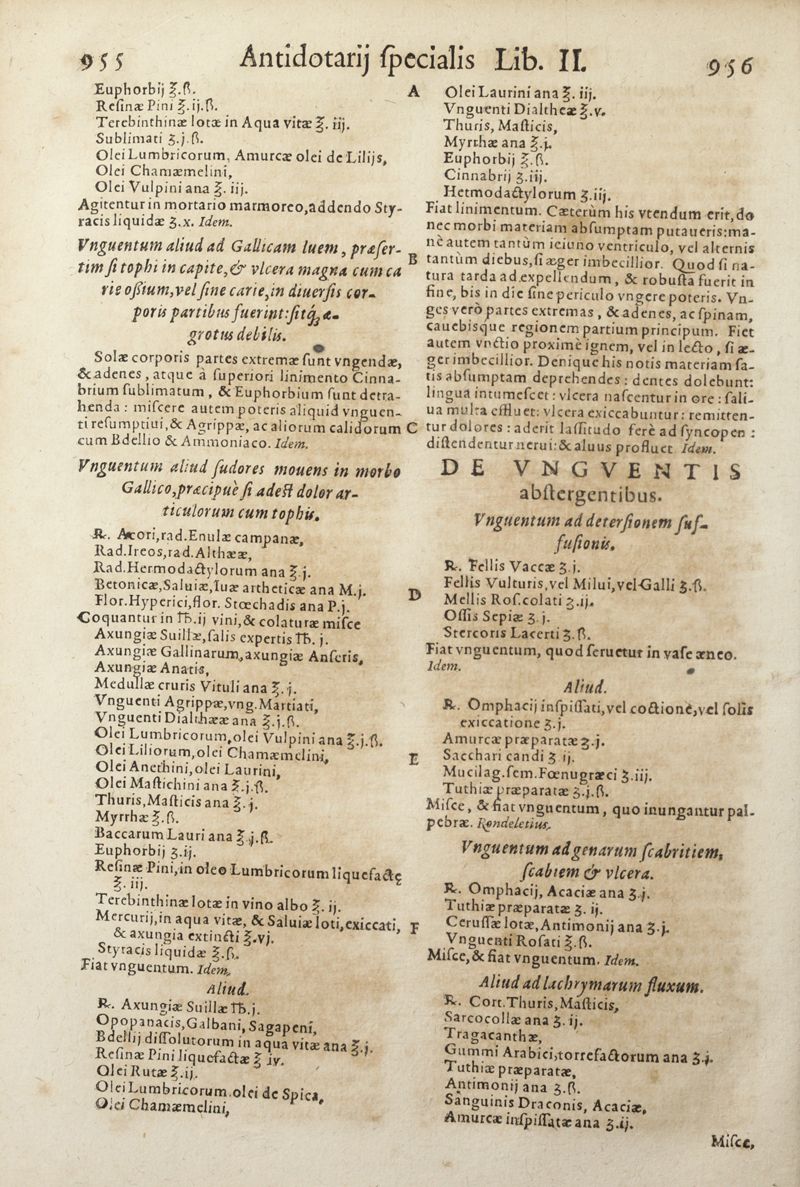 955 Antidotarij ſpecialis Lib. II. 956
Euphorbij ℥.ß.
Reſinæ Pini ℥.ij.ß.
Terebinthinæ lotæ in Aqua vitæ ℥. iij.
Sublimati ʒ.j.ß.
Olei Lumbricorum, Amurcæ olei de Lilijs,
Olei Chamæmelini,
Olei Vulpini ana ℥. iij.
Agitentur in mortario marmoreo,addendo Sty-
racis liquidæ ʒ.x. Idem.
Vnguentum aliud ad Gallicam luem, præſer-
tim ſi tophi in capite,& vlcera magna cum ca
rie oßium,vel ſine carie,in diuerſis cor-
poris partibus fuerint:ſitq́; æ-
grotus debilis.
Solæ corporis partes extremæ ſunt vngendæ,
& adenes, atque à ſuperiori linimento Cinna-
brium ſublimatum, & Euphorbium ſunt detra-
henda : miſcere autem poteris aliquid vnguen-
ti reſumptiui,& Agrippæ, ac aliorum calidorum
cum Bdellio & Ammoniaco. Idem.
Vnguentum aliud ſudores mouens in morbo
Gallico,præcipuè ſi adeſt dolor ar-
ticulorum cum tophis.
℞. Acori,rad.Enulæ campanæ,
Rad.Ireos,rad.Althææ,
Rad.Hermodactylorum ana ℥.j.
Betonicæ,Saluiæ,Iuæ artheticæ ana M.j.
Flor.Hyperici,flor. Stœchadis ana P.j.
Coquantur in ℔.ij vini,& colaturæ miſce
Axungiæ Suillæ,ſalis expertis ℔. j.
Axungiæ Gallinarum,axungiæ Anſeris,
Axungiæ Anatis,
Medullæ cruris Vituli ana ℥. j.
Vnguenti Agrippæ,vng.Martiati,
Vnguenti Dialthææ ana ℥.j.ß.
Olei Lumbricorum,olei Vulpini ana ℥.j.ß.
Olei Liliorum,olei Chamæmelini,
Olei Anethini,olei Laurini,
Olei Maſtichini ana ℥.j.ß.
Thuris,Maſticis ana ℥.j.
Myrrhæ ℥.ß.
Baccarum Lauri ana ℥.j.ß.
Euphorbij ʒ.ij.
Reſinæ Pini,in oleo Lumbricorum liquefactę
℥.iij.
Terebinthinæ lotæ in vino albo ℥. ij.
Mercurij,in aqua vitæ, & Saluiæ loti,exiccati,
& axungia extincti ℥.vj.
Styracis liquidæ ℥.ß.
Fiat vnguentum. Idem.
Aliud.
℞. Axungiæ Suillæ ℔.j.
Opopanacis,Galbani, Sagapeni,
Bdellij diſſolutorum in aqua vitæ ana ℥.j.
Reſinæ Pini liquefactæ ℥ iv.
Olei Rutæ ℥.ij.
Olei Lumbricorum,olei de Spica,
Olei Chamæmelini,
A
B
C
D
E
F
Olei Laurini ana ℥. iij.
Vnguenti Dialtheæ ℥.v.
Thuris, Maſticis,
Myrrhæ ana ℥.j.
Euphorbij ℥.ß.
Cinnabrij ʒ.iij.
Hermodactylorum ʒ.iij.
Fiat linimentum. Cæterùm his vtendum erit,do
nec morbi materiam abſumptam putaueris:ma-
nè autem tantùm ieiuno ventriculo, vel alternis
tantùm diebus,ſi æger imbecillior. Quod ſi na-
tura tarda ad expellendum, & robuſta fuerit in
fine, bis in die ſine periculo vngere poteris. Vn-
ges verò partes extremas, & adenes, ac ſpinam,
cauebisque regionem partium principum. Fiet
autem vnctio proximè ignem, vel in lecto, ſi æ-
ger imbecillior. Denique his notis materiam ſa-
tis abſumptam deprehendes : dentes dolebunt:
lingua intumeſcet : vlcera naſcentur in ore : ſali-
ua multa effluet: vlcera exiccabuntur: remitten-
tur dolores : aderit laſſitudo ferè ad ſyncopen :
diſtendentur nerui:& aluus profluet Idem.
DE VNGVENTIS
abſtergentibus.
Vnguentum ad deterſionem ſuf-
fuſionis.
℞. Fellis Vaccæ ʒ.j.
Fellis Vulturis,vel Milui,vel Galli ʒ.ß.
Mellis Roſ.colati ʒ.ij.
Oſſis Sepiæ ʒ.j.
Stercoris Lacerti ʒ.ß.
Fiat vnguentum, quod ſeruetur in vaſe æneo.
Idem.
Aliud.
℞. Omphacij inſpiſſati,vel coctionè,vel ſolis
exiccatione ʒ.j.
Amurcæ præparatæ ʒ.j.
Sacchari candi ʒ ij.
Mucilag.ſem.Fœnugræci ʒ.iij.
Tuthiæ præparatæ ʒ.j.ß.
Miſce, & fiat vnguentum, quo inungantur pal-
pebræ. Rondeletius.
Vnguentum ad genarum ſcabritiem,
ſcabiem & vlcera.
℞. Omphacij, Acaciæ ana ʒ.j.
Tuthiæ præparatæ ʒ. ij.
Ceruſſæ lotæ,Antimonij ana ʒ.j.
Vnguenti Roſati ℥.ß.
Miſce,& fiat vnguentum. Idem.
Aliud ad lachrymarum fluxum.
℞. Cort.Thuris,Maſticis,
Sarcocollæ ana ʒ. ij.
Tragacanthæ,
Gummi Arabici,torrefactorum ana ʒ.j.
Tuthiæ præparatæ,
Antimonij ana ʒ.ß.
Sanguinis Draconis, Acaciæ,
Amurcæ inſpiſſatæ ana ʒ.ij.
Miſce,